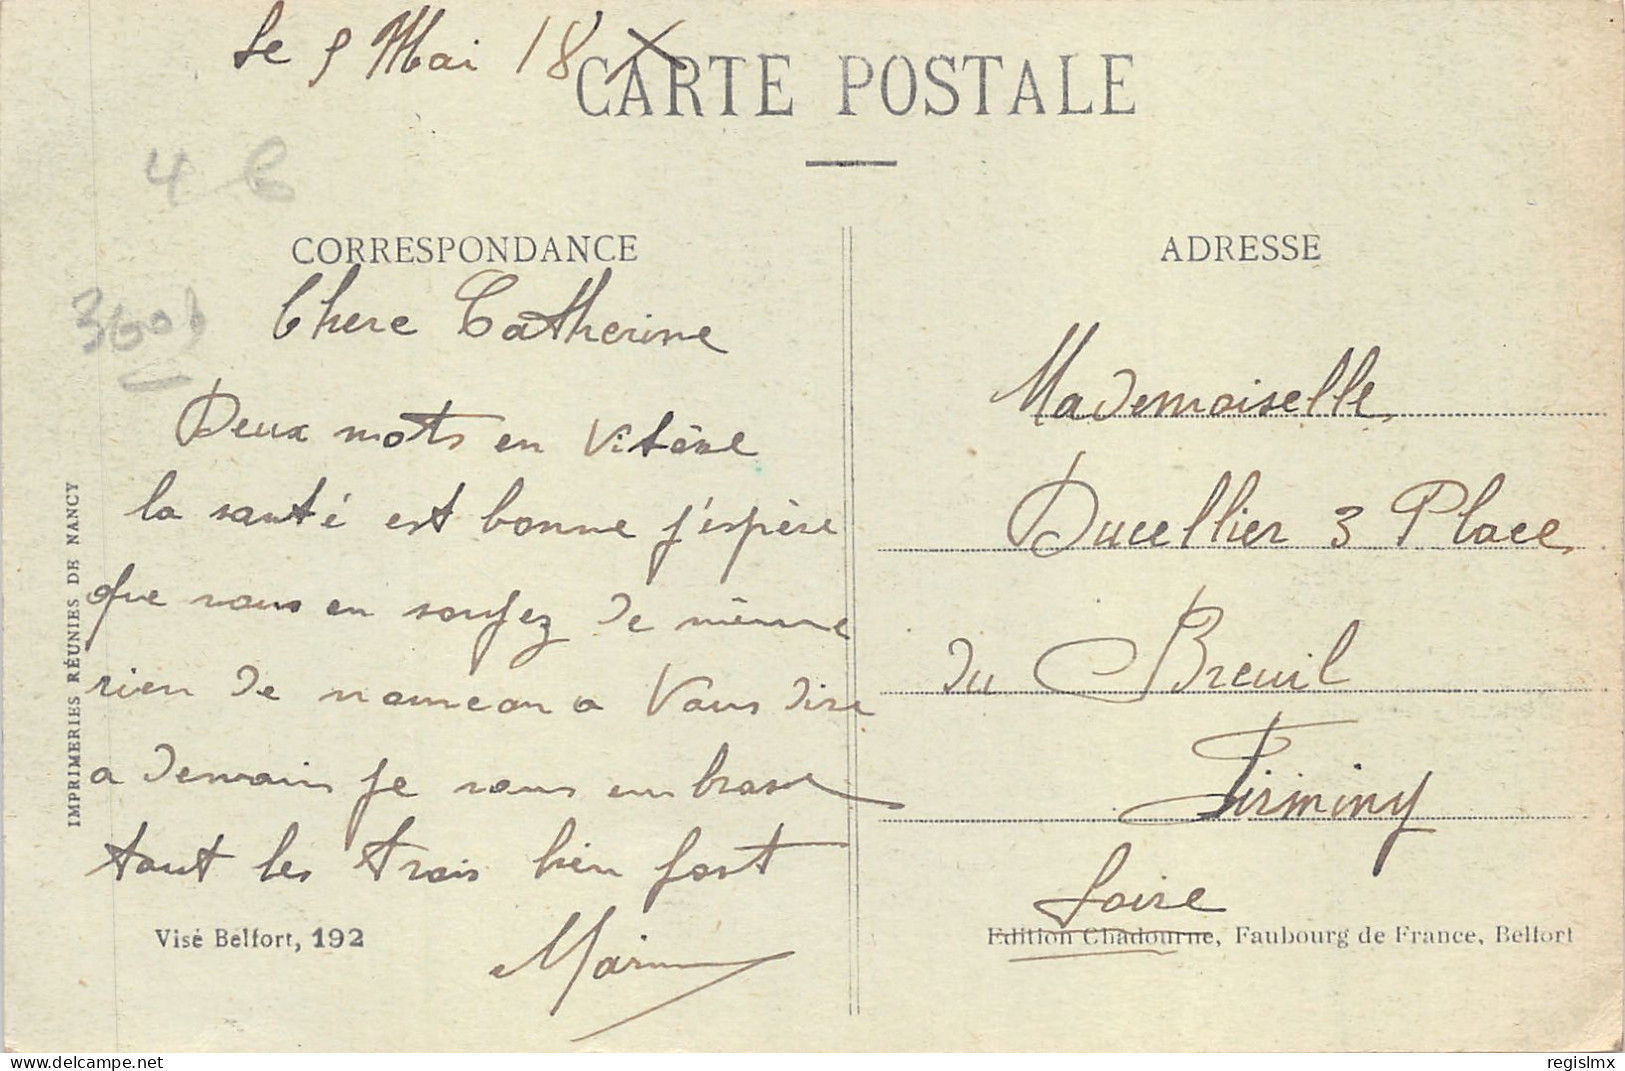 Le 9 Mai 18
CARTE POSTALE
4
CORRESPONDANCE
Chere Catherine
Deux mots en
la santé est bonne j'espère
que vous en soyez de même
rien de nouveau a Vous dire
a demain je vous embrasse
tout les trois bien fort
Visé Belfort, 192
IMPRIMERIES RÉUNIES DE NANCY
ADRESSE
Mademoiselle
Ducellier 3 Place
du Breuil
Firminy
Loire
Edition Chadourne, Faubourg de France, Belfort
www.delcampe.net
regislmx